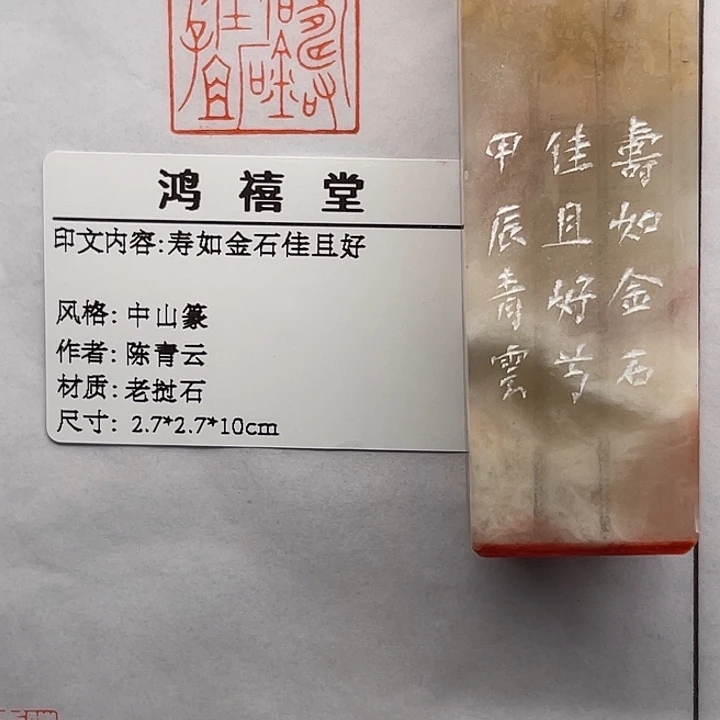 鸿禧堂
印文内容:寿如金石佳且好
风格: 中山篆
作者: 陈青云
材质: 老挝石
尺寸: 2.7*2.7*10cm
壽如金石
佳且好兮
甲辰青雲